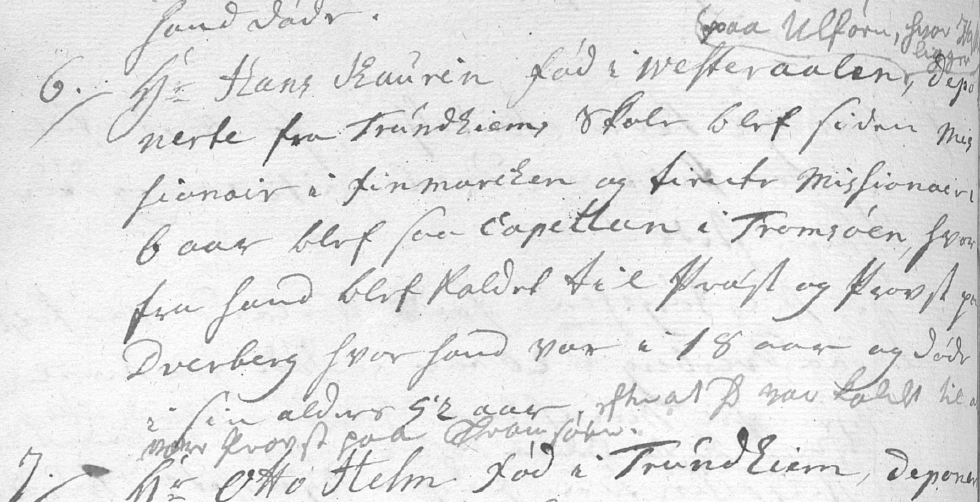 hand døde.
paa Ulföen, hvor
ligger
6. Hr Hans Kaurin fød i westeraalen, depo
nerte fra Trúndhiems Skole blef siden Mis
sionair i finmarcken og tiente Missionair
6 aar blef saa Capellan i Tromsöen, hvor
fra hand blef kaldet til Præst og Provst p
Dverberg hvor hand var i 18 aar og døde
i sin alders 52 aar, efterat var kaldet til a
være Provst paa Tromsöen.
7. Hr Otto Helm fød i Trúndhiem, depone